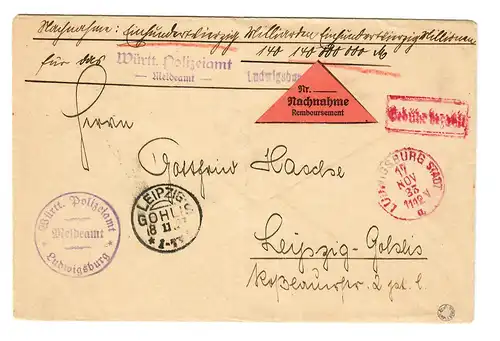 Nachnahme: Einhundertvierzig Milliarden Einhundertvierzig Millionen
140 140 000 000 M
für das Württ. Polizeiamt
— Meldeamt —
Ludwigsburg
Nr.
Nachnahme
Remboursement
Gebühr bezahlt
Herrn
Gottfried Hasche
LUDWIGSBURG STADT
17
NOV
11-12 V
a
LEIPZIG-
GOHLIS
18 11
Württ. Polizeiamt
Meldeamt
Ludwigsburg
Leipzig-Gohlis
2 pt. l.